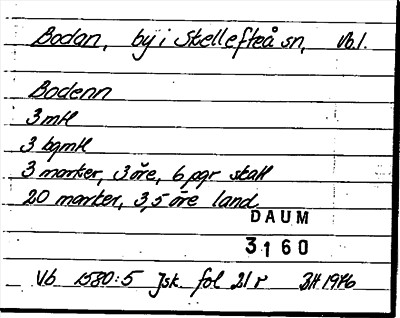 Bodan, by i Skellefteå sn, Vb.l.
Bodenn
3 mtl
3 bgmtl
3 marker, 3 öre, 6 pgr skatt
20 marker, 3,5 öre land
DAUM
3160
Vb 1580:5 Jsk fol 21 r BH 1976